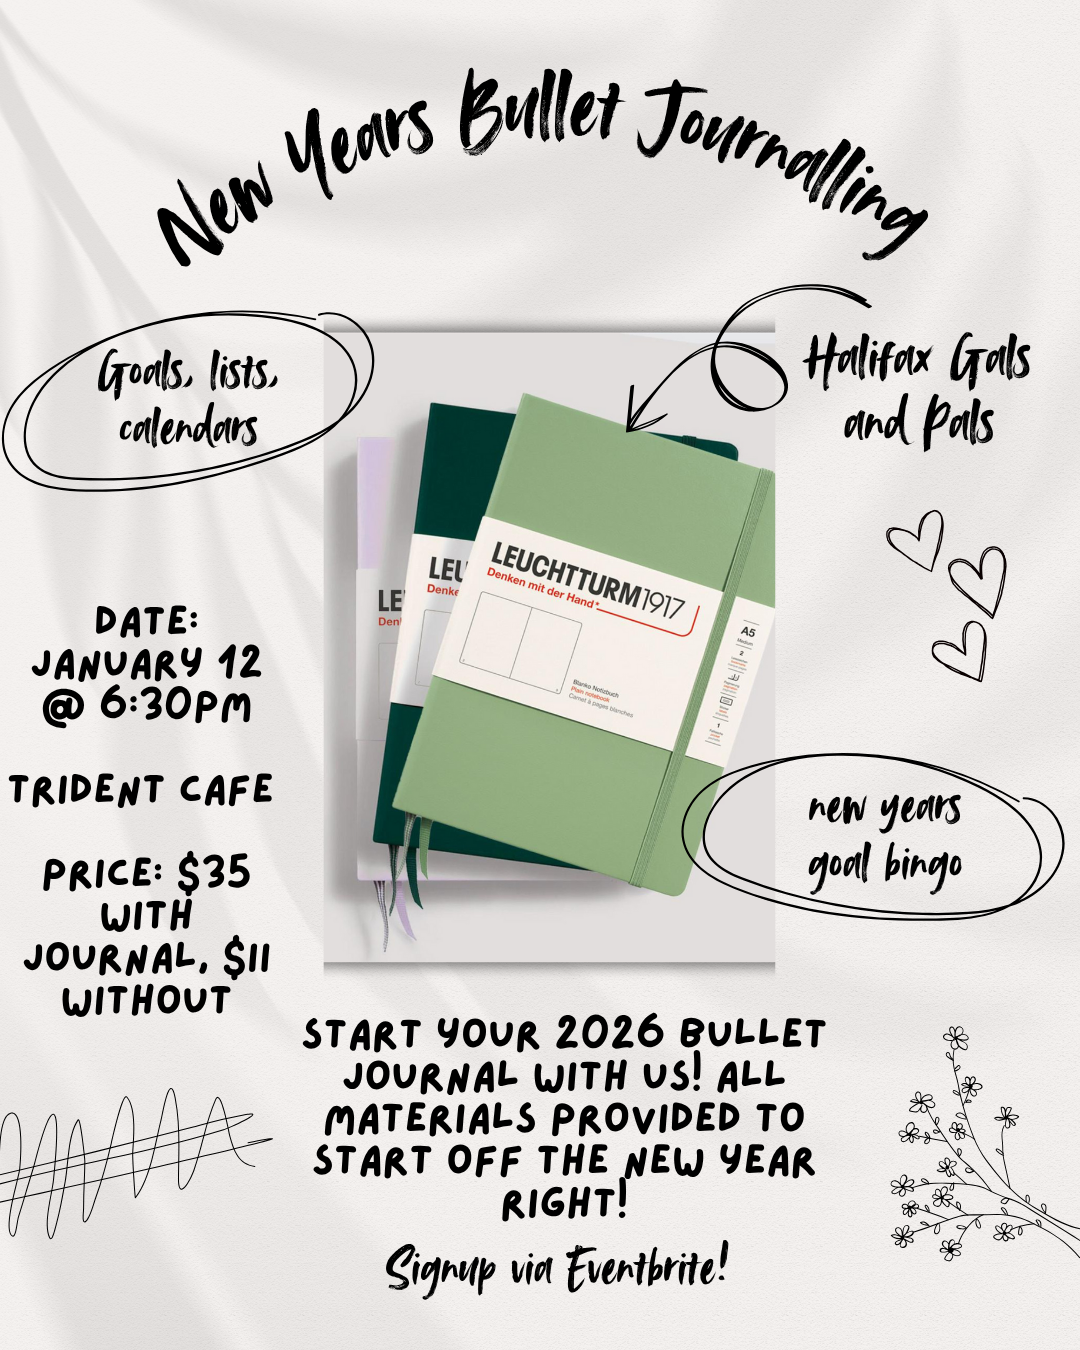 New Years Bullet Journalling
Goals, lists,
calendars
Halifax Gals
and Pals
DATE:
JANUARY 12
@ 6:30PM
TRIDENT CAFE
PRICE: $35
WITH
JOURNAL, $11
WITHOUT
LEUCHTTURM1917
Denken mit der Hand*
Blanko Notizbuch
Plain notebook
Carnet à pages blanches
A5
Medium
2
1
LEU
Denke
LE
Den
new years
goal bingo
START YOUR 2026 BULLET
JOURNAL WITH US! ALL
MATERIALS PROVIDED TO
START OFF THE NEW YEAR
RIGHT!
Signup via Eventbrite!